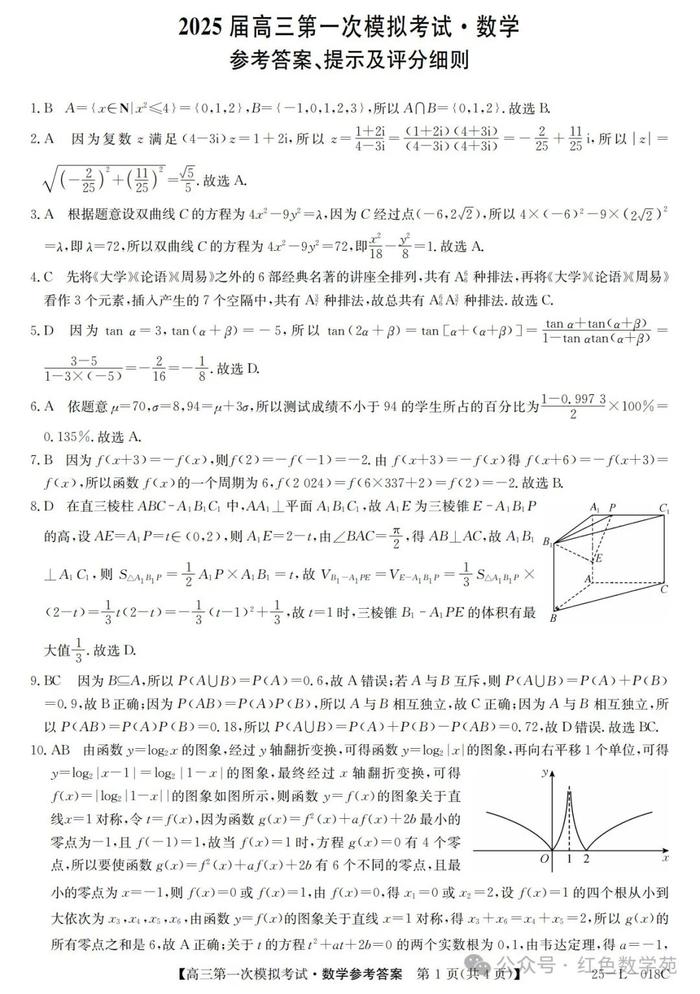 2025 届高三第一次模拟考试·数学
参考答案、提示及评分细则
1. B A={x∈N|x²≤4}={0,1,2},B={-1,0,1,2,3},所以 A∩B={0,1,2}. 故选 B.
2. A 因为复数 z 满足(4-3i)z=1+2i,所以 z=(1+2i)/(4-3i)=((1+2i)(4+3i))/((4-3i)(4+3i))=-2/25+11/25 i,所以|z|=
√((-2/25)²+(11/25)²)=√5/5. 故选 A.
3. A 根据题意设双曲线 C 的方程为 4x²-9y²=λ,因为 C 经过点(-6,2√2),所以 4×(-6)²-9×(2√2)²
=λ,即 λ=72,所以双曲线 C 的方程为 4x²-9y²=72,即 x²/18-y²/8=1. 故选 A.
4. C 先将《大学》《论语》《周易》之外的 6 部经典名著的讲座全排列,共有 A₆⁶ 种排法,再将《大学》《论语》《周易》
看作 3 个元素,插入产生的 7 个空隔中,共有 A₇³ 种排法,故总共有 A₆⁶A₇³ 种排法. 故选 C.
5. D 因为 tan α=3,tan(α+β)=-5,所以 tan(2α+β)=tan[α+(α+β)]=(tan α+tan(α+β))/(1-tan αtan(α+β))=
(3-5)/(1-3×(-5))=-2/16=-1/8. 故选 D.
6. A 依题意 μ=70,σ=8,94=μ+3σ,所以测试成绩不小于 94 的学生所占的百分比为(1-0.997 3)/2×100%=
0.135%. 故选 A.
7. B 因为 f(x+3)=-f(x),则 f(2)=-f(-1)=-2. 由 f(x+3)=-f(x)得 f(x+6)=-f(x+3)=
f(x),所以函数 f(x)的一个周期为 6,f(2 024)=f(6×337+2)=f(2)=-2. 故选 B.
8. D 在直三棱柱 ABC-A₁B₁C₁ 中,AA₁⊥平面 A₁B₁C₁,故 A₁E 为三棱锥 E-A₁B₁P
的高,设 AE=A₁P=t∈(0,2),则 A₁E=2-t,由∠BAC=π/2,得 AB⊥AC,故 A₁B₁
⊥A₁C₁,则 S△A₁B₁P=1/2 A₁P×A₁B₁=t,故 V_{B₁-A₁PE}=V_{E-A₁B₁P}=1/3 S△A₁B₁P×
(2-t)=1/3 t(2-t)=-1/3(t-1)²+1/3,故 t=1 时,三棱锥 B₁-A₁PE 的体积有最
大值 1/3. 故选 D.
A₁ P C₁
B₁
E
A
C
B
9. BC 因为 B⊆A,所以 P(A∪B)=P(A)=0.6,故 A 错误;若 A 与 B 互斥,则 P(A∪B)=P(A)+P(B)
=0.9,故 B 正确;因为 P(AB)=P(A)P(B),所以 A 与 B 相互独立,故 C 正确;因为 A 与 B 相互独立,所
以 P(AB)=P(A)P(B)=0.18,所以 P(A∪B)=P(A)+P(B)-P(AB)=0.72,故 D 错误. 故选 BC.
10. AB 由函数 y=log₂x 的图象,经过 y 轴翻折变换,可得函数 y=log₂|x|的图象,再向右平移 1 个单位,可得
y=log₂|x-1|=log₂|1-x|的图象,最终经过 x 轴翻折变换,可得
f(x)=|log₂|1-x||的图象如图所示,则函数 y=f(x)的图象关于直
线 x=1 对称,令 t=f(x),因为函数 g(x)=f²(x)+af(x)+2b 最小的
零点为-1,且 f(-1)=1,故当 f(x)=1 时,方程 g(x)=0 有 4 个零
点,所以要使函数 g(x)=f²(x)+af(x)+2b 有 6 个不同的零点,且最
小的零点为 x=-1,则 f(x)=0 或 f(x)=1,由 f(x)=0,得 x₁=0 或 x₂=2,设 f(x)=1 的四个根从小到
大依次为 x₃,x₄,x₅,x₆,由函数 y=f(x)的图象关于直线 x=1 对称,得 x₃+x₆=x₄+x₅=2,所以 g(x)的
所有零点之和是 6,故 A 正确;关于 t 的方程 t²+at+2b=0 的两个实数根为 0,1,由韦达定理,得 a=-1,
y
O 1 2 x
【高三第一次模拟考试·数学参考答案 第 1 页(共 4 页)】 25-L-018C
公众号·红色数学苑